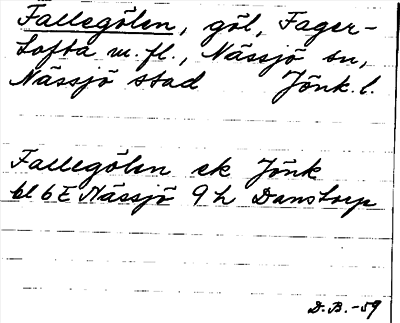 Fallegölen, göl, Fager-
Lofta m.fl., Nässjö sn,
Nässjö stad Jönk. l.
Fallegölen ek Jönk
bl 6E Nässjö 9h Danstorp
D.B.-59